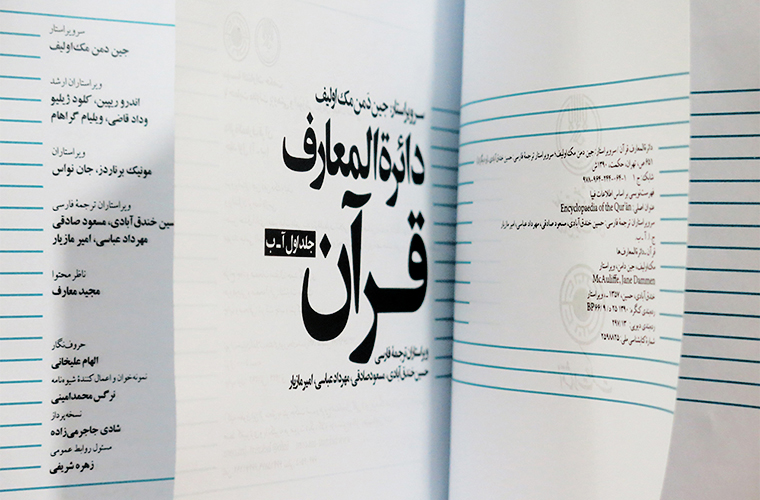 سرویراستار
جین دمن مک‌اولیف
ویراستاران ارشد
اندرو ریپین، کلود ژیلیو
وداد قاضی، ویلیام گراهام
ویراستاران
مونیک برناردز، جان نواس
ویراستاران ترجمهٔ فارسی
حسین خندق‌آبادی، مسعود صادقی
مهرداد عباسی، امیر مازیار
ناظر محتوا
مجید معارف
حروف‌نگار
الهام علیخانی
نمونه‌خوان و اعمال‌کنندهٔ شیوه‌نامه
نرگس محمدامینی
نسخه‌پرداز
شادی جاجرمی‌زاده
مسئول روابط عمومی
زهره شریفی
سرویراستار: جین دَمن مک‌اولیف
دائرة المعارف
قرآن
جلد اول آ-ب
ویراستاران ترجمهٔ فارسی
حسین خندق‌آبادی، مسعود صادقی، مهرداد عباسی، امیر مازیار
دائرةالمعارف قرآن / سرویراستار: جین دمن مک‌اولیف؛ سرویراستار ترجمهٔ فارسی: حسین خندق‌آبادی
تهران: حکمت، ۱۳۹۰ش
فهرست‌نویسی بر اساس اطلاعات فیپا
عنوان اصلی: Encyclopaedia of the Qurʾān
ویراستاران ترجمهٔ فارسی: حسین خندق‌آبادی، مسعود صادقی، مهرداد عباسی، امیر مازیار
ج ۱. آ ـ ب.
قرآن ـ دائرةالمعارف‌ها
مک‌اولیف، جین دمن، ویراستار
McAuliffe, Jane Dammen
خندق‌آبادی، حسین، ۱۳۵۷ ـ ، ویراستار
رده‌بندی کنگره: ۱۳۹۰ ۲۵ د / ۹ / ۶۶ BP
رده‌بندی دیویی: ۲۹۷/۱۳
شماره کتابشناسی ملی: ۲۵۹۸۸۲۵